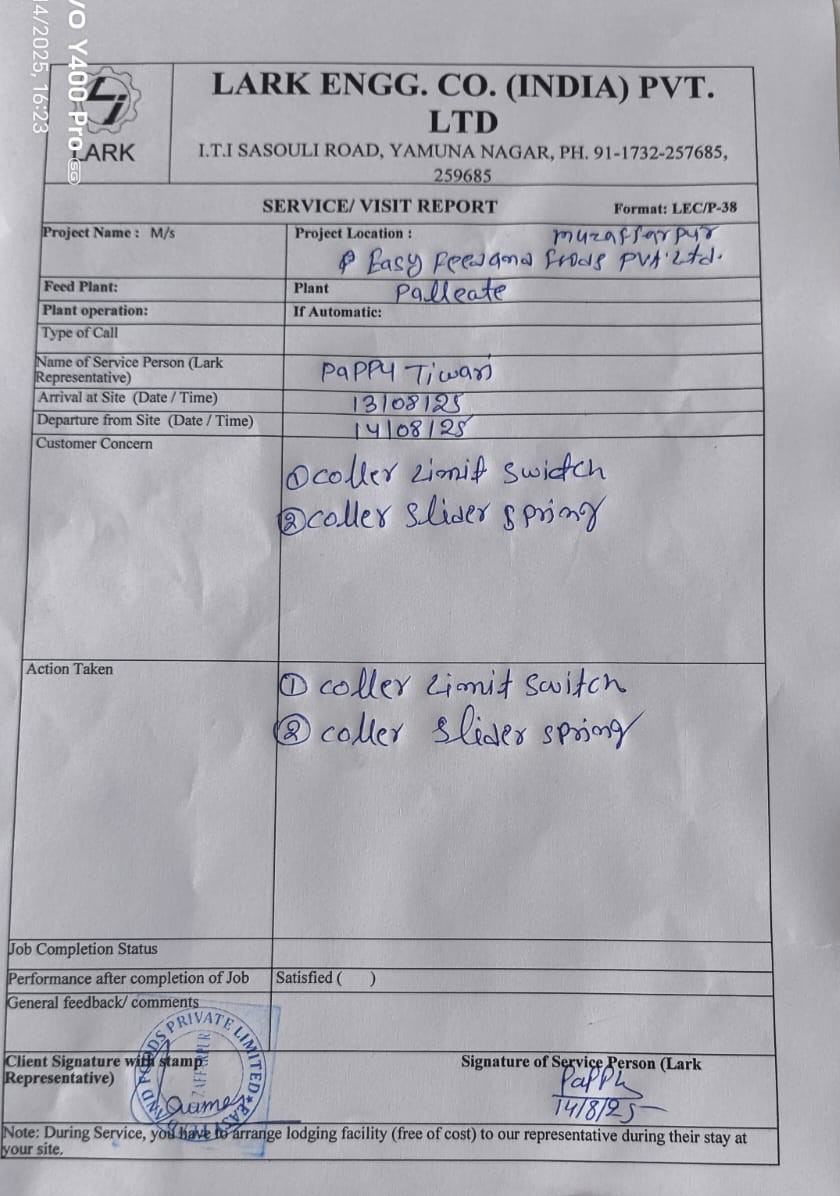 VO Y400 Pro 5G
4/2025, 16:23
LARK
LARK ENGG. CO. (INDIA) PVT.
LTD
I.T.I SASOULI ROAD, YAMUNA NAGAR, PH. 91-1732-257685,
259685
SERVICE/ VISIT REPORT Format: LEC/P-38
Project Name : M/s Project Location : muzaffarpur
Easy Feed and foods PVt. Ltd.
Feed Plant: Plant Palleate
Plant operation: If Automatic:
Type of Call
Name of Service Person (Lark
Representative) PaPPy Tiwari
Arrival at Site (Date / Time) 13/08/25
Departure from Site (Date / Time) 14/08/25
Customer Concern
① coller Limit Switch
② coller Slider Spring
Action Taken
① coller Limit Switch
② coller Slider spring
Job Completion Status
Performance after completion of Job Satisfied ( )
General feedback/ comments
PRIVATE LIMITED
Client Signature with stamp Signature of Service Person (Lark
Representative) PaPPy
14/8/25
Note: During Service, you have to arrange lodging facility (free of cost) to our representative during their stay at
your site.